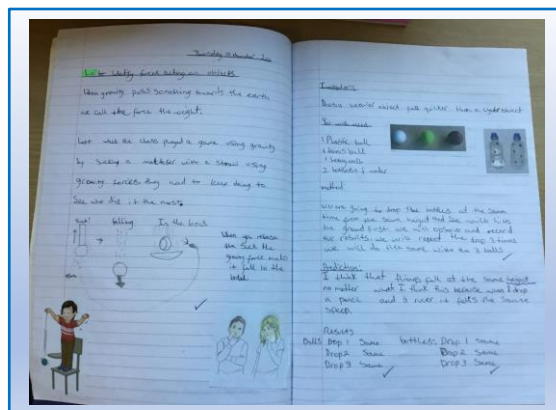 LO to identify forces acting on objects
When gravity pulls something towards the earth
we call the force the weight.
Last week the class played a game using gravity
by sucking a malteser with a straw using
gravity forces they had to keep doing to
see who did it the most.
suck!
falling
In the bowl
When you release
the suck the
gravity force makes
it fall to the
bowl.
Investigation
Does a heavier object fall quicker than a lighter object
You will need
1 Plastic ball
1 tennis ball
1 heavy ball
2 bottles of water
method
We are going to drop the bottles at the same
time from the same height and see which hits
the ground first. we will observe and record
the results. we will repeat the drop 3 times
we will do this same with the 3 balls
Prediction
I think that things fall at the same height
no matter what I think this because when I drop
a pencil and a ruler it falls the same
speed.
Results
Balls Drop 1 Same bottles: Drop 1 same
Drop 2 Same Drop 2 Same
Drop 3 Same Drop 3 Same